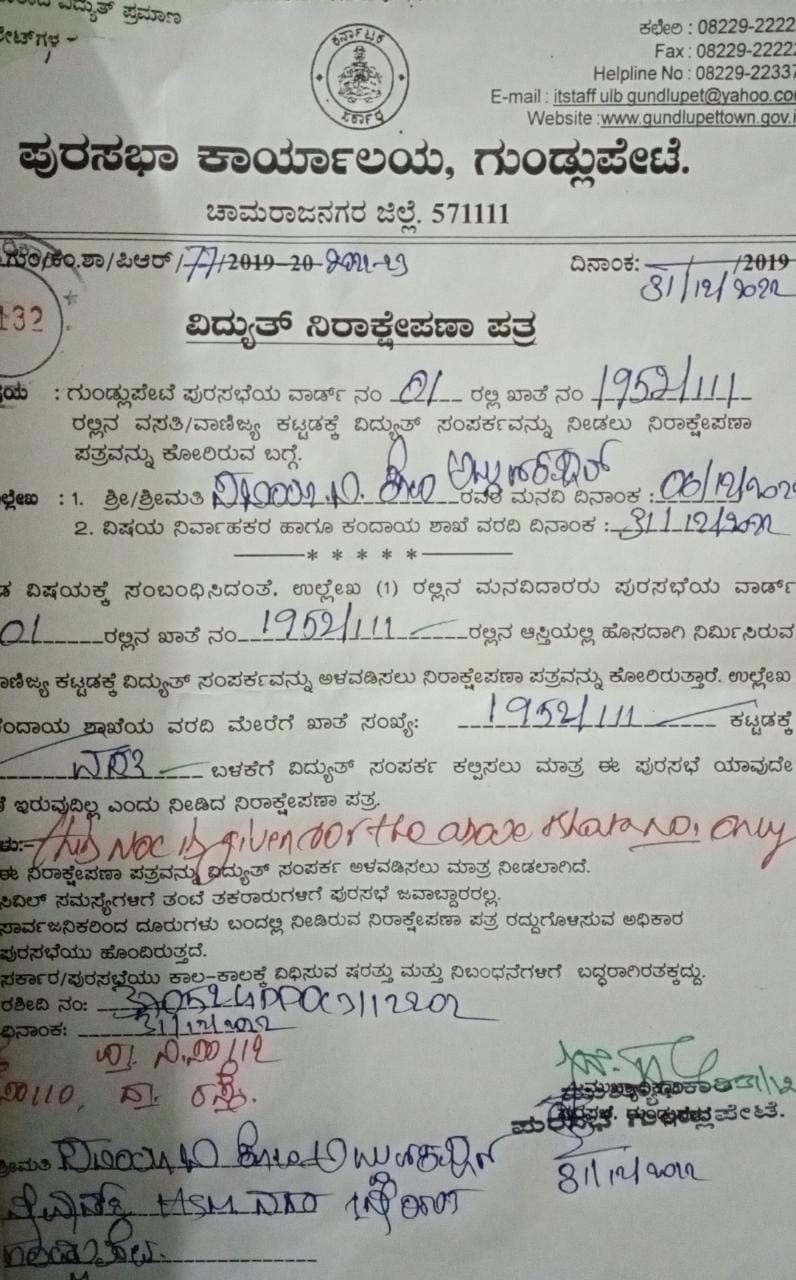 ವಿದ್ಯುತ್ ಪ್ರಮಾಣ
ಕರ್ನಾಟಕ
ಸರ್ಕಾರ
ಕಛೇರಿ : 08229-2222
Fax : 08229-22222
Helpline No : 08229-22337
E-mail : itstaff ulb gundlupet@yahoo.co
Website :www.gundlupettown.gov.i
ಪುರಸಭಾ ಕಾರ್ಯಾಲಯ, ಗುಂಡ್ಲುಪೇಟೆ.
ಚಾಮರಾಜನಗರ ಜಿಲ್ಲೆ. 571111
ಗುಂ/ಕಂ.ಶಾ/ಪಿಆರ್ /77/2019-20
ದಿನಾಂಕ: /2019
31/12/2022
132
ವಿದ್ಯುತ್ ನಿರಾಕ್ಷೇಪಣಾ ಪತ್ರ
ಯ : ಗುಂಡ್ಲುಪೇಟೆ ಪುರಸಭೆಯ ವಾರ್ಡ್ ನಂ 01 ರಲ್ಲಿ ಖಾತೆ ನಂ 1952/111
ರಲ್ಲಿನ ವಸತಿ/ವಾಣಿಜ್ಯ ಕಟ್ಟಡಕ್ಕೆ ವಿದ್ಯುತ್ ಸಂಪರ್ಕವನ್ನು ನೀಡಲು ನಿರಾಕ್ಷೇಪಣಾ
ಪತ್ರವನ್ನು ಕೋರಿರುವ ಬಗ್ಗೆ.
ಲ್ಲೇಖ : 1. ಶ್ರೀ/ಶ್ರೀಮತಿ ರವರ ಮನವಿ ದಿನಾಂಕ : 06/12/202
2. ವಿಷಯ ನಿರ್ವಾಹಕರ ಹಾಗೂ ಕಂದಾಯ ಶಾಖೆ ವರದಿ ದಿನಾಂಕ : 31/12/2022
* * * * *
ಡ ವಿಷಯಕ್ಕೆ ಸಂಬಂಧಿಸಿದಂತೆ, ಉಲ್ಲೇಖ (1) ರಲ್ಲಿನ ಮನವಿದಾರರು ಪುರಸಭೆಯ ವಾರ್ಡ್
01 ರಲ್ಲಿನ ಖಾತೆ ನಂ 1952/111 ರಲ್ಲಿನ ಆಸ್ತಿಯಲ್ಲಿ ಹೊಸದಾಗಿ ನಿರ್ಮಿಸಿರುವ
ಾಣಿಜ್ಯ ಕಟ್ಟಡಕ್ಕೆ ವಿದ್ಯುತ್ ಸಂಪರ್ಕವನ್ನು ಅಳವಡಿಸಲು ನಿರಾಕ್ಷೇಪಣಾ ಪತ್ರವನ್ನು ಕೋರಿರುತ್ತಾರೆ. ಉಲ್ಲೇಖ
ಕಂದಾಯ ಶಾಖೆಯ ವರದಿ ಮೇರೆಗೆ ಖಾತೆ ಸಂಖ್ಯೆ: 1952/111 ಕಟ್ಟಡಕ್ಕೆ
ಬಳಕೆಗೆ ವಿದ್ಯುತ್ ಸಂಪರ್ಕ ಕಲ್ಪಿಸಲು ಮಾತ್ರ ಈ ಪುರಸಭೆ ಯಾವುದೇ
ಇರುವುದಿಲ್ಲ ಎಂದು ನೀಡಿದ ನಿರಾಕ್ಷೇಪಣಾ ಪತ್ರ.
This NOC is given for the above khata no, only
ಈ ನಿರಾಕ್ಷೇಪಣಾ ಪತ್ರವನ್ನು ವಿದ್ಯುತ್ ಸಂಪರ್ಕ ಅಳವಡಿಸಲು ಮಾತ್ರ ನೀಡಲಾಗಿದೆ.
ಸಿವಿಲ್ ಸಮಸ್ಯೆಗಳಿಗೆ ತಂಟೆ ತಕರಾರುಗಳಿಗೆ ಪುರಸಭೆ ಜವಾಬ್ದಾರರಲ್ಲ.
ಸಾರ್ವಜನಿಕರಿಂದ ದೂರುಗಳು ಬಂದಲ್ಲಿ ನೀಡಿರುವ ನಿರಾಕ್ಷೇಪಣಾ ಪತ್ರ ರದ್ದುಗೊಳಿಸುವ ಅಧಿಕಾರ
ಪುರಸಭೆಯು ಹೊಂದಿರುತ್ತದೆ.
ಸರ್ಕಾರ/ಪುರಸಭೆಯು ಕಾಲ-ಕಾಲಕ್ಕೆ ವಿಧಿಸುವ ಷರತ್ತು ಮತ್ತು ನಿಬಂಧನೆಗಳಿಗೆ ಬದ್ಧರಾಗಿರತಕ್ಕದ್ದು.
ರಶೀದಿ ನಂ:
ದಿನಾಂಕ: 31/12/2022
ಮುಖ್ಯಾಧಿಕಾರಿ
ಪುರಸಭೆ ಗುಂಡ್ಲುಪೇಟೆ.
31/12/2022
ಶ್ರೀಮತಿ